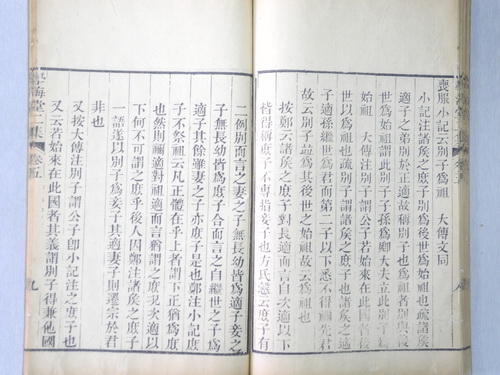 喪服小記云別子爲祖　大傳文同
小記注諸矦之庶子別爲後世爲始祖也疏謂諸矦
適子之弟別於正適故稱別子也爲祖者別與後
世爲始祖謂此別子子孫爲卿大夫立此別子爲
始祖　大傳注別子謂公子若始來在此國者後
世以爲祖也疏別子謂諸矦之庶子也諸矦之適
子適孫繼世爲君而第二子以下悉不得禰先君
故云別子並爲其後世之始祖故云爲祖也
按鄭云諸矦之庶子對長適而言自次適以下
皆得稱庶子不專指妾子也方氏慤云庶子有
二例別而言之妻之子無長幼皆爲適子妾之
子無長幼皆爲庶子合而言之自繼世之子爲
適子其餘雖妻之子亦庶子是也鄭注小記庶
子不祭祖云凡正體在乎上者謂下正猶爲庶
也然則禰適對祖適而言猶謂之庶況次適以
下何不可謂之庶乎後人因鄭注諸矦之庶子
一語遂以別子爲妾子其適妻子則遷宗於君
非也
又按大傳注別子謂公子卽小記注之庶子也
又云若始來在此國者其義謂別子得兼他國
學海堂二集 卷五 九